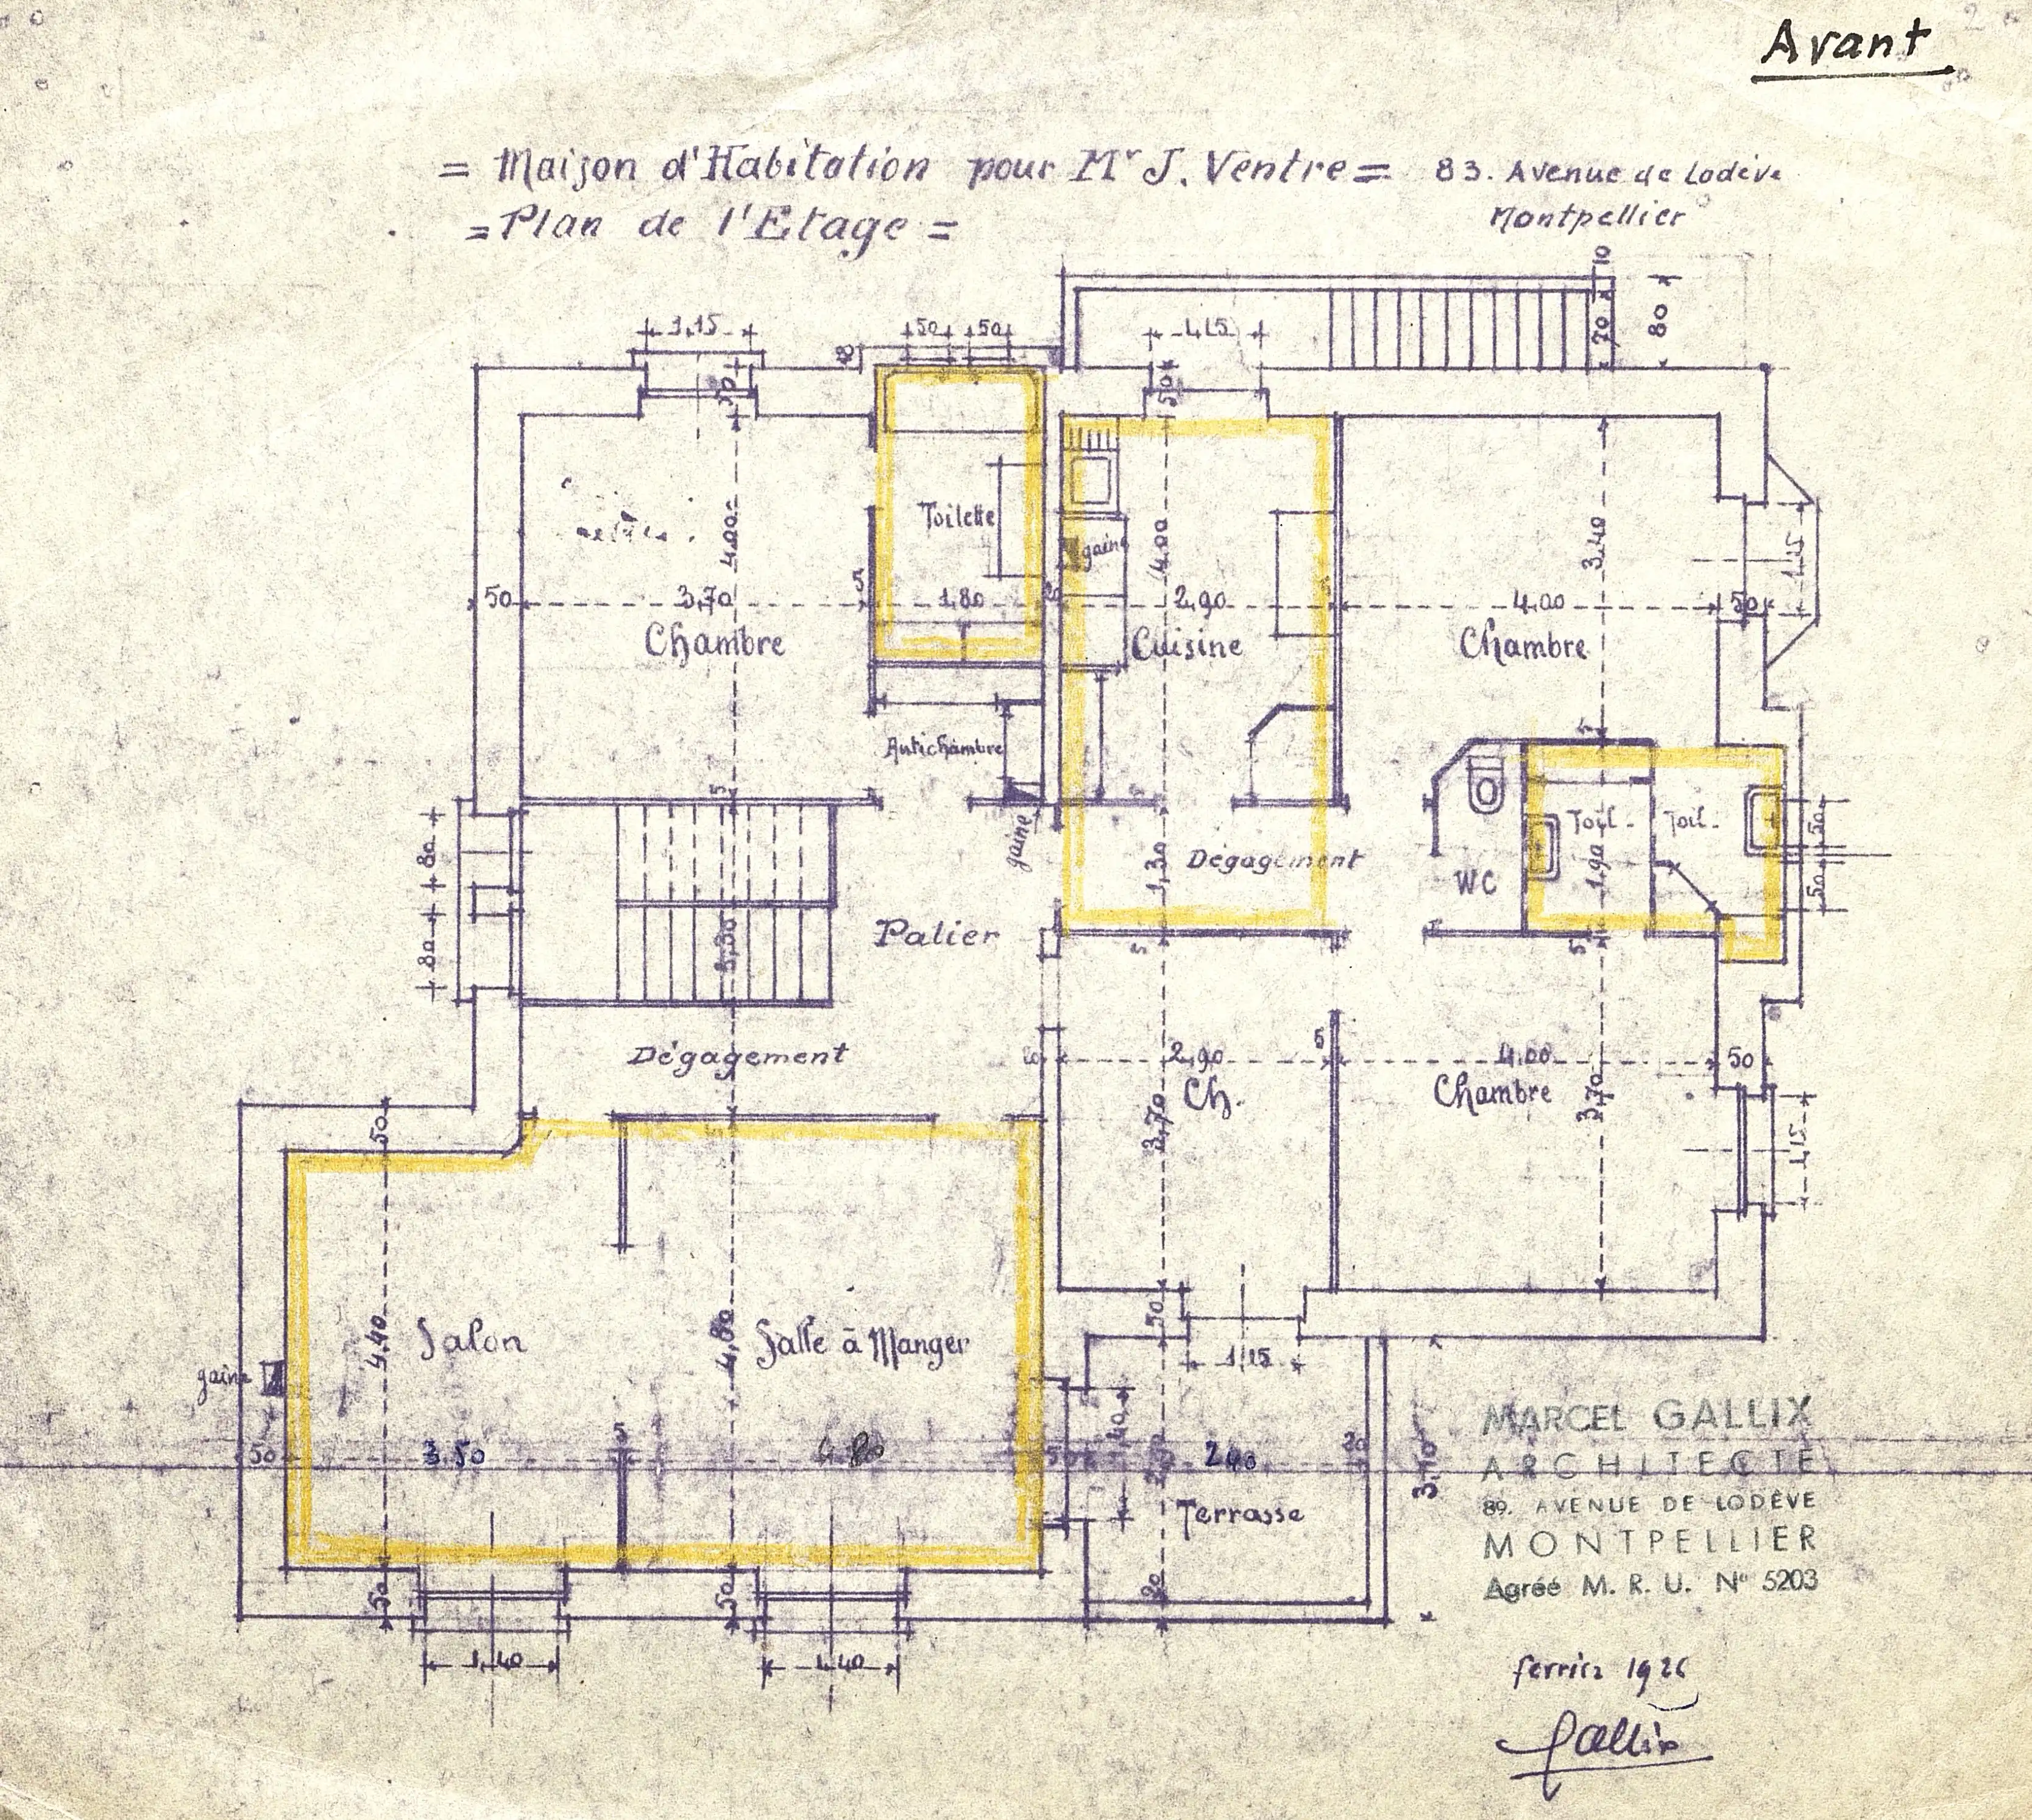 Avant
= Maison d'Habitation pour Mr J. Ventre = 83. Avenue de Lodève
= Plan de l'Etage = Montpellier
10
1,15 50 50 1,15 70 80
8 50 50
4,00 Toilette gaine 4,00 3,40 1,15
50 3,70 5 1,80 2,90 5 4,00 50
Chambre Cuisine Chambre
Antichambre 5
5
80 gaine 1,30 Dégagement WC Toil. 1,90 Toil. 50
50
80 3,30 Palier 5 5
Dégagement 2,90 5 4.00 50
50 Ch. Chambre
3,70 3,70 1,15
4,40 Salon 4,80 Salle à Manger 50
gaine 1,15
50 3.50 5 4 80 1,40 2 40 20 3.70
Terrasse
50 50 20
1,40 1,40
MARCEL GALLIX
ARCHITECTE
89. AVENUE DE LODÈVE
MONTPELLIER
Agréé M. R. U. N° 5203
Gallix